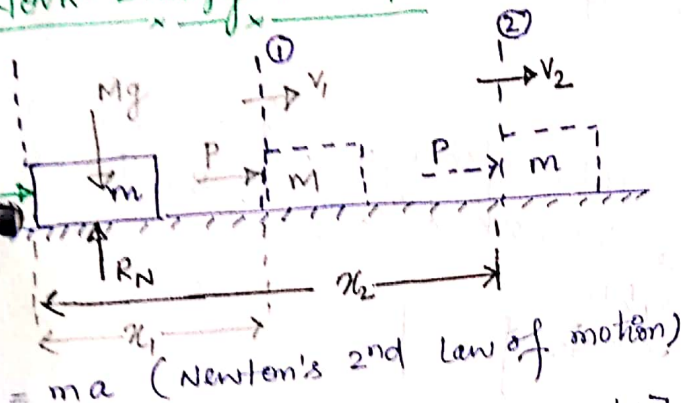 ① ②
Mg V₁ V₂
P P
m M m
R_N
x₂
x₁
= ma (Newton's 2nd Law of motion)